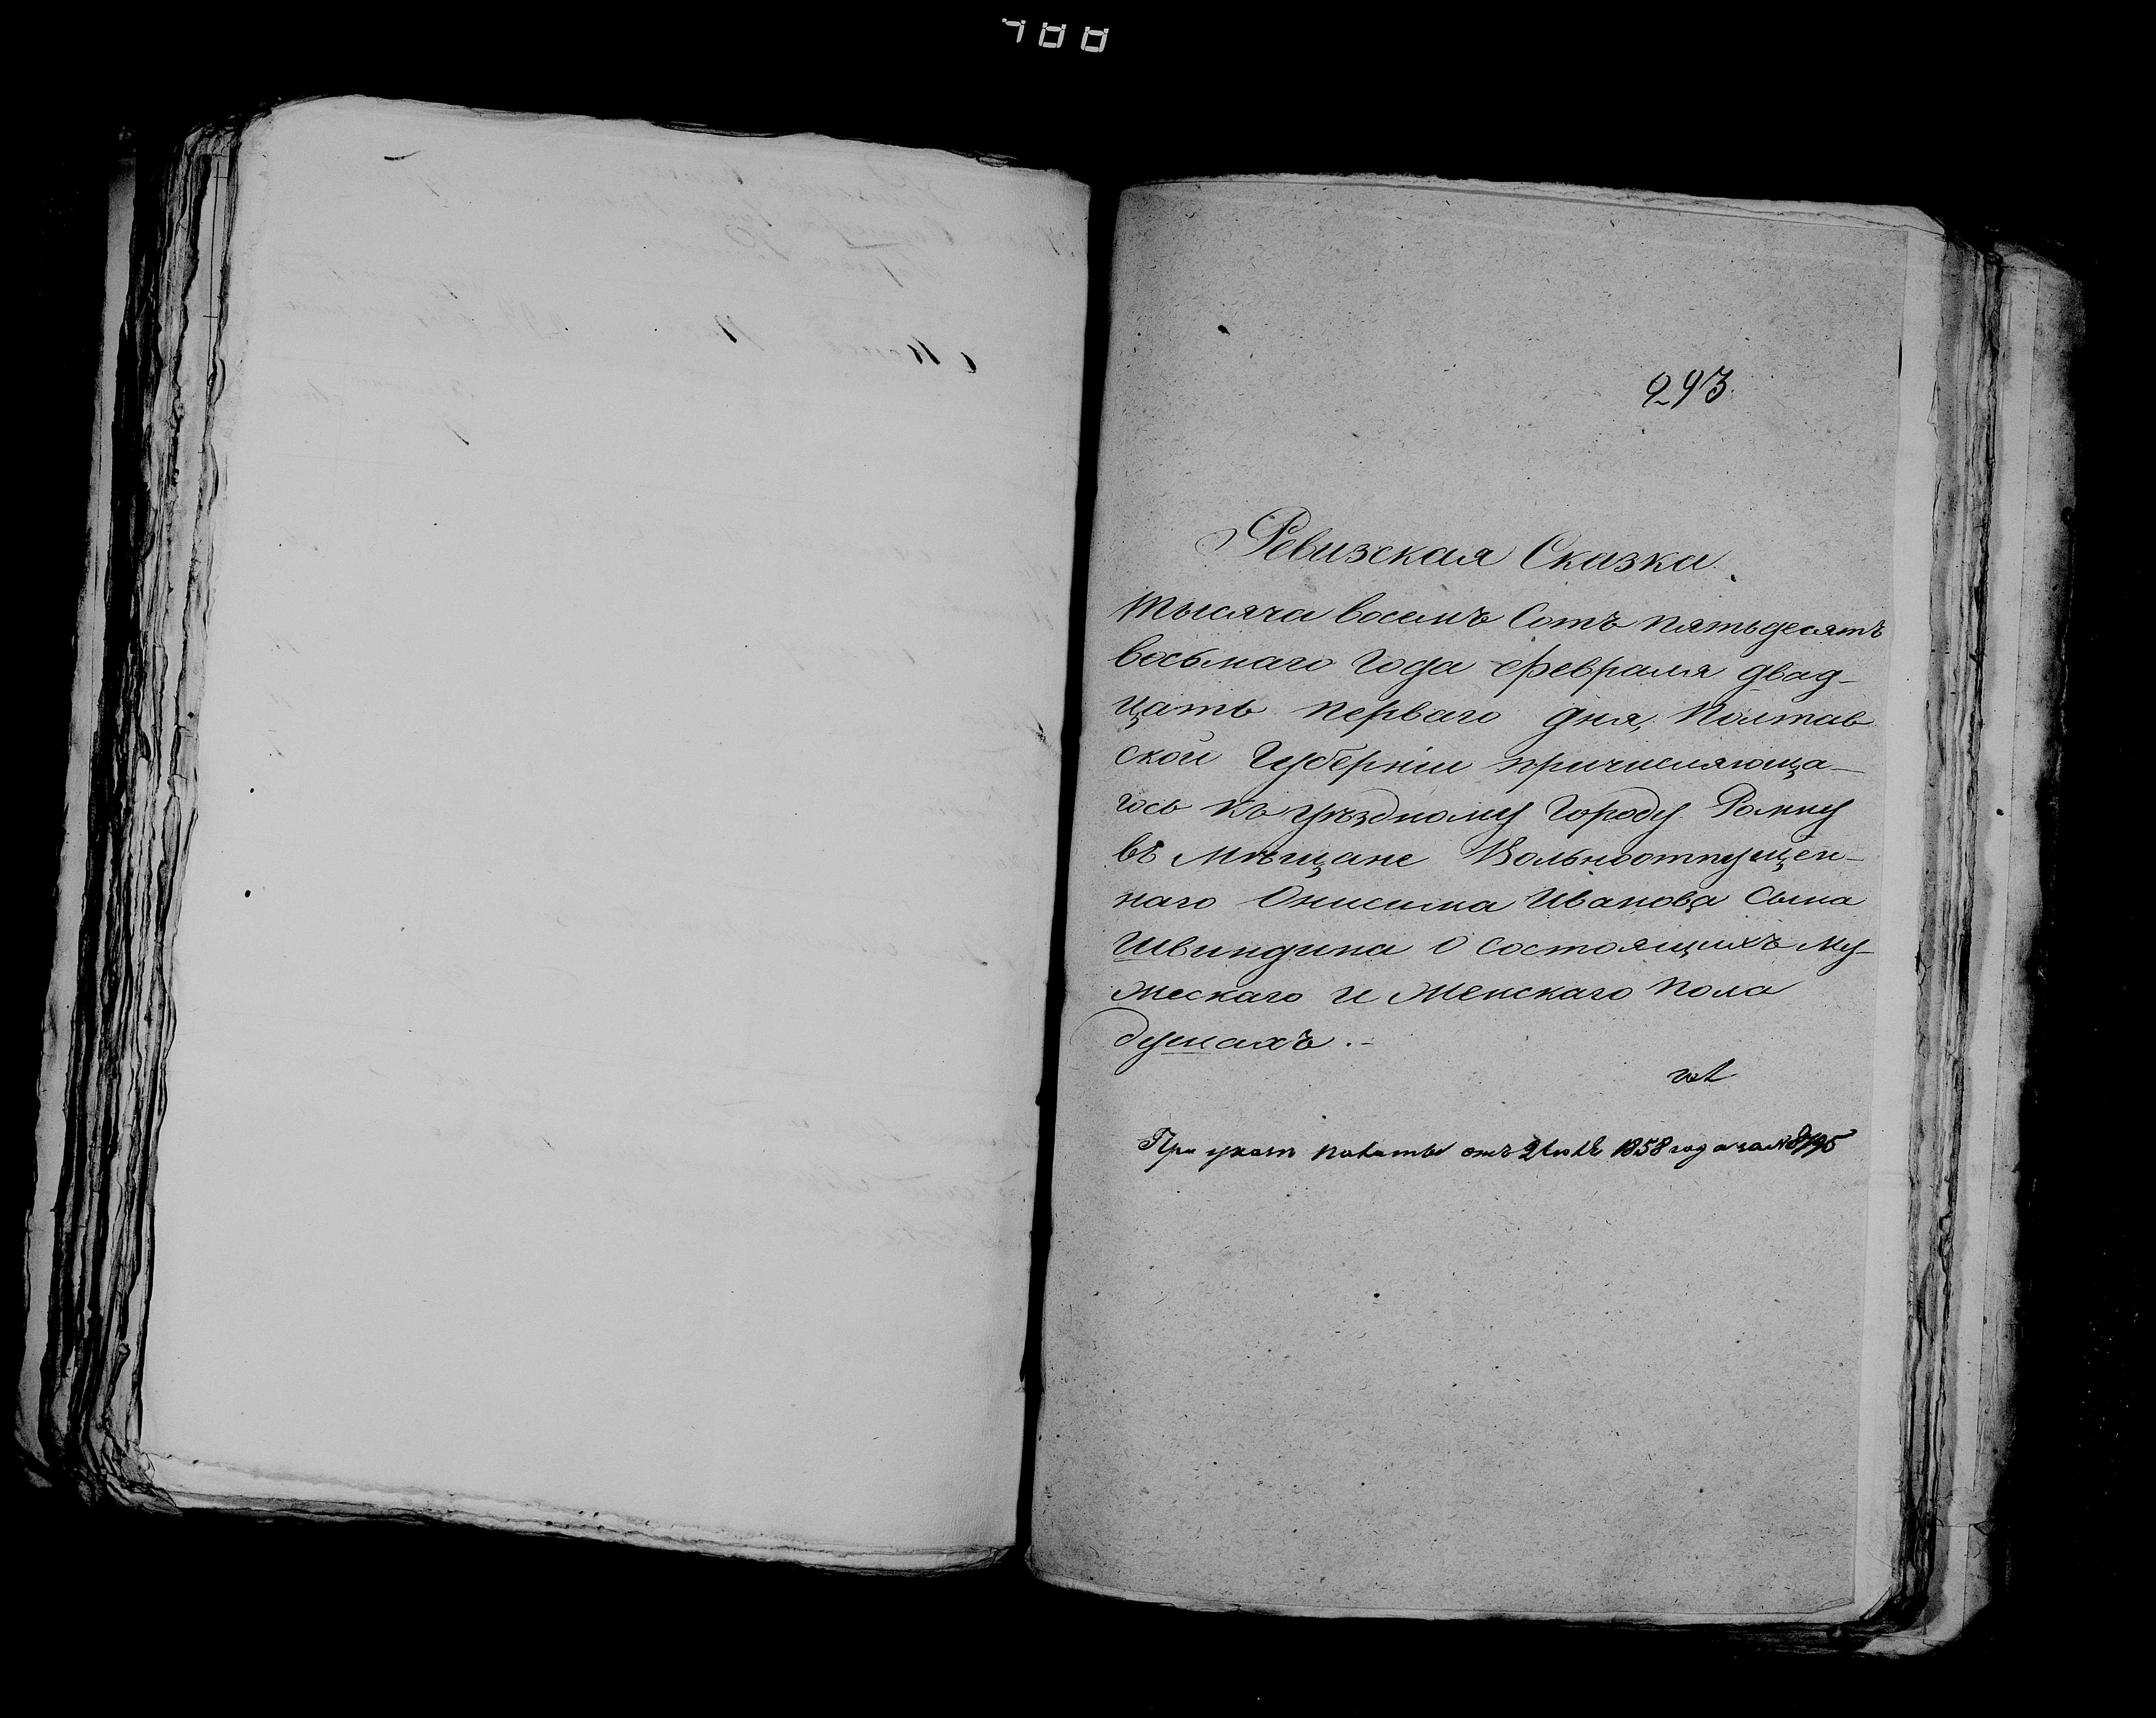 293.
Ревизская Сказка.
Тысяча восемъ Сотъ пятьдесятъ
восьмаго года февраля двад-
цать перваго дня, Полтав
ской Губерніи причисляюща-
гось къ уѣздному городу Ромну
въ Мѣщане Вольноотпущен-
наго Онисима Иванова Сына
Швиндина о состоящихъ му-
жескаго и женскаго пола
душахъ.-
При указѣ палаты отъ 1858 года за №